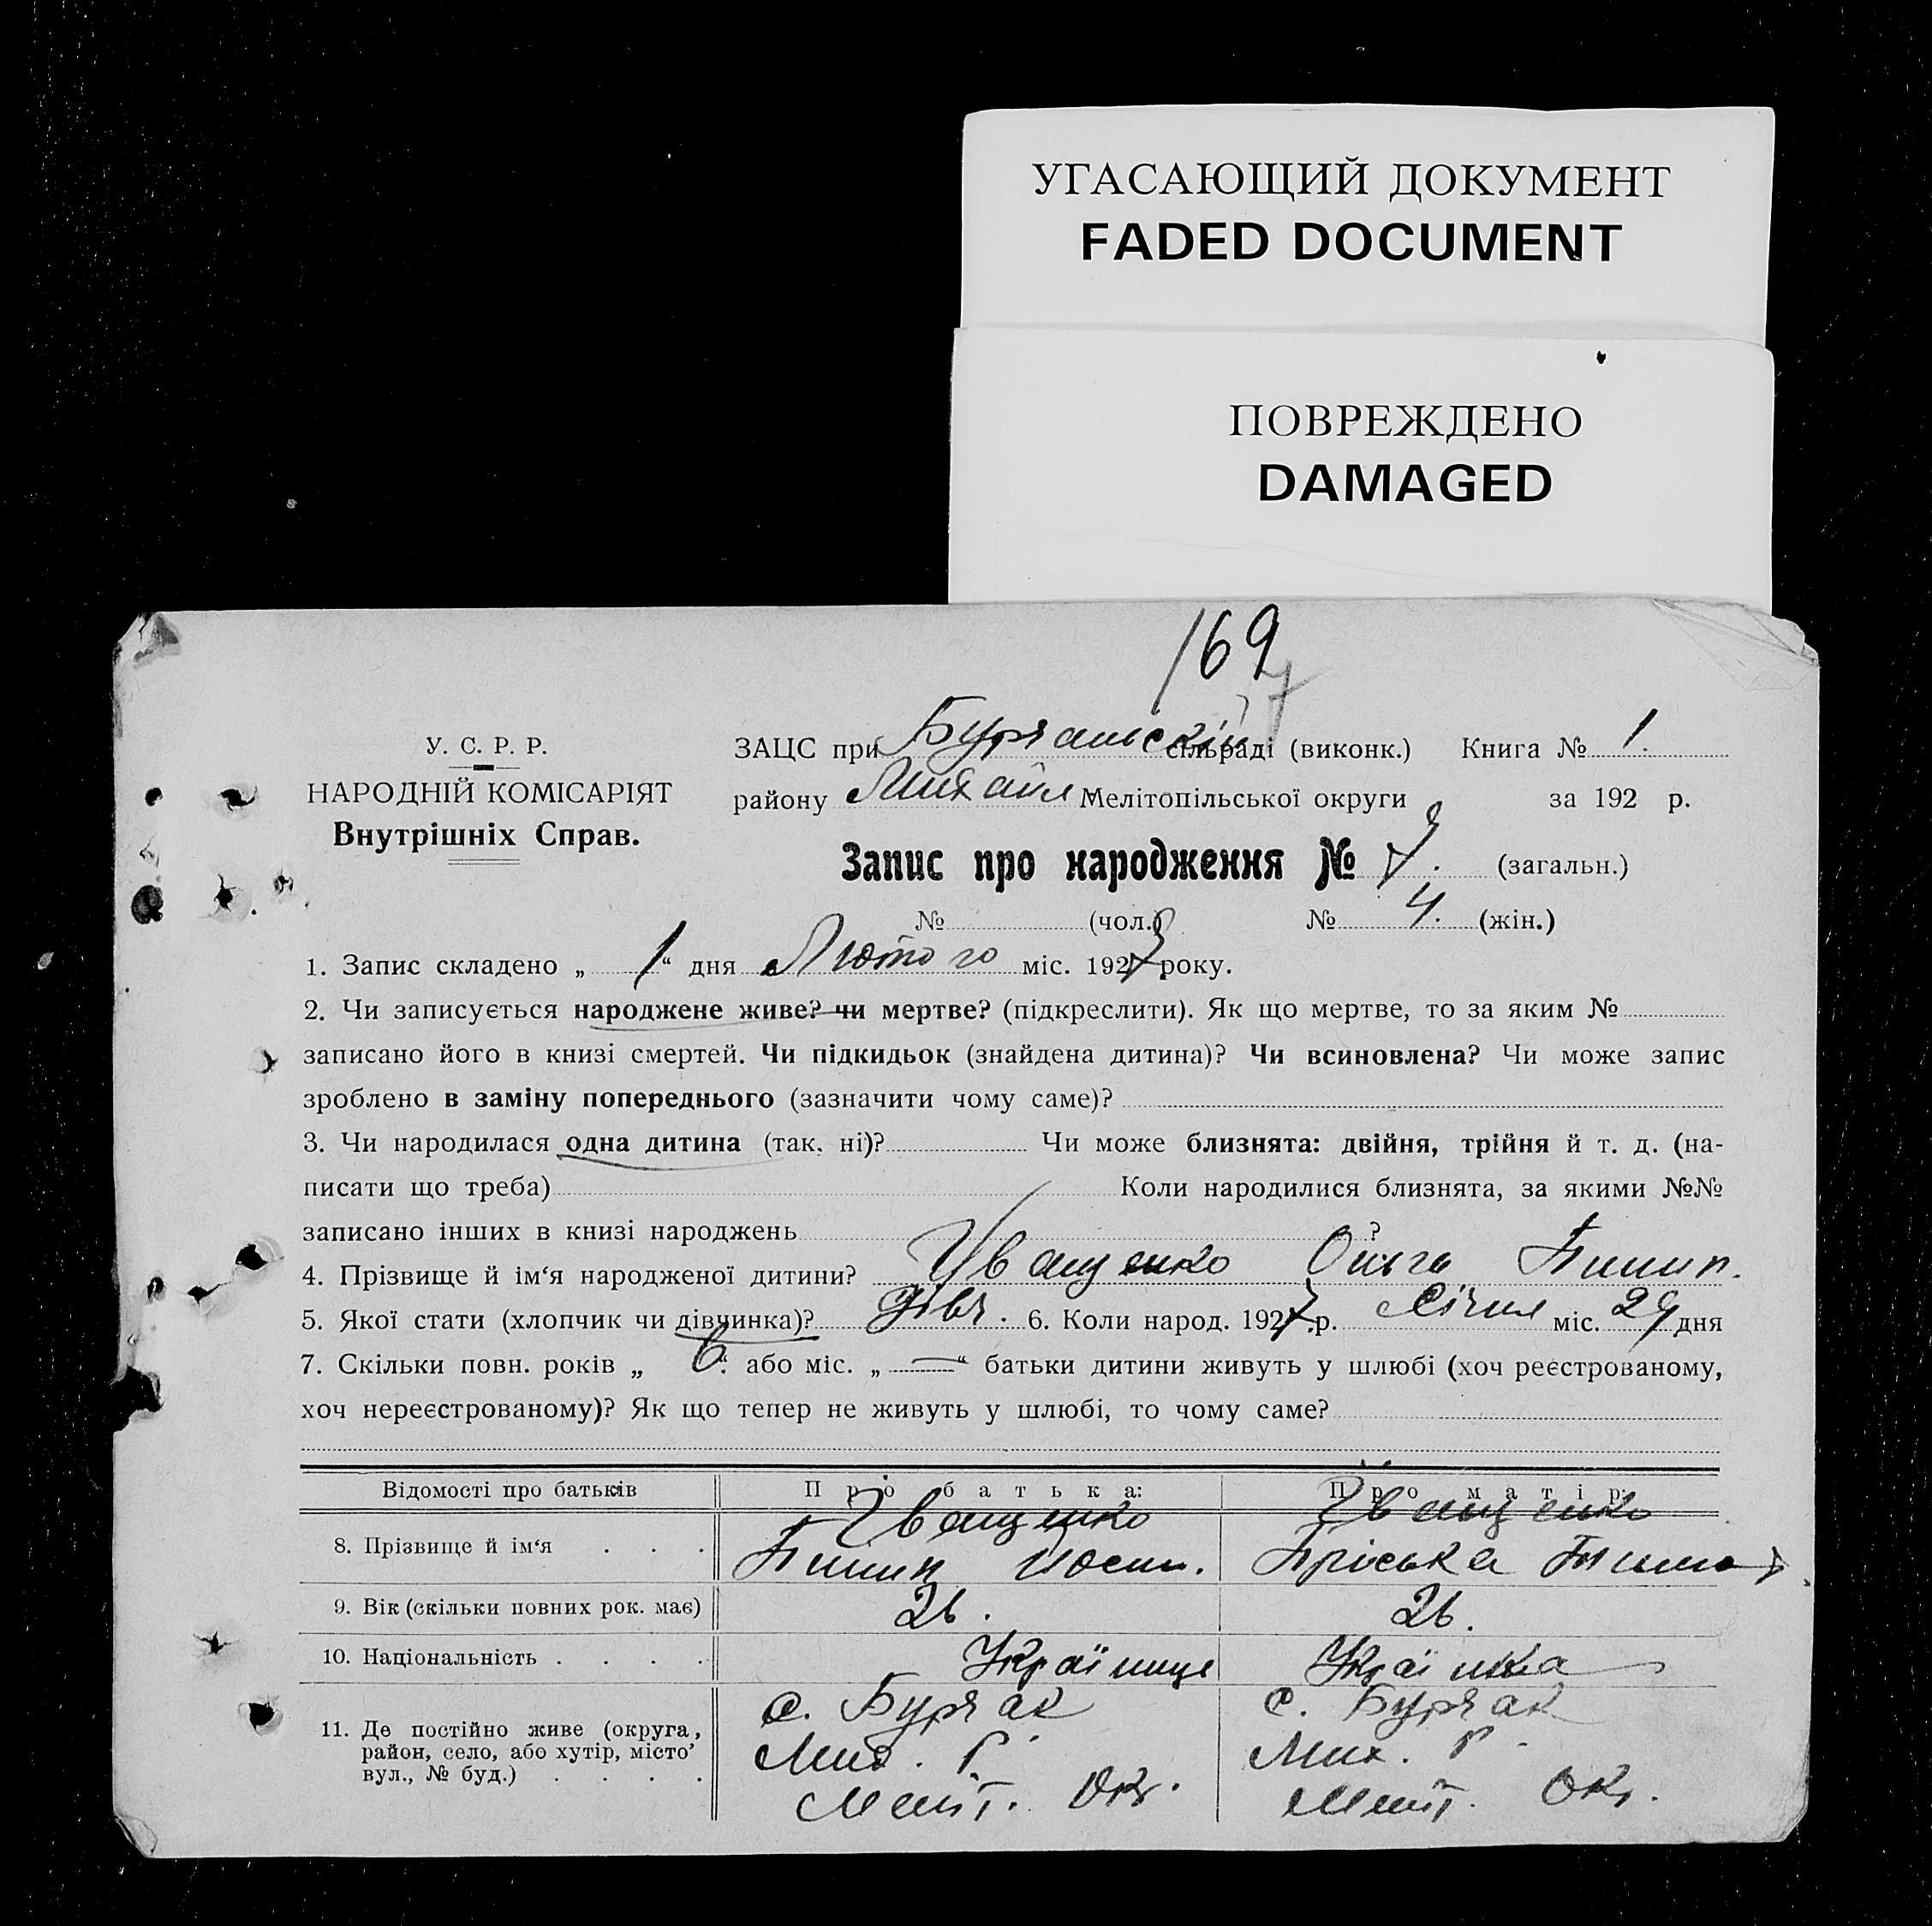 УГАСАЮЩИЙ ДОКУМЕНТ
FADED DOCUMENT
ПОВРЕЖДЕНО
DAMAGED
169
У. С. Р. Р.
НАРОДНІЙ КОМІСАРІЯТ
Внутрішніх Справ.
ЗАЦС при Бурчанській сільраді (виконк.) Книга № 1.
району Михайл Мелітопільської округи за 192 р.
Запис про народження № 7. (загальн.)
№ (чол.) № 4. (жін.)
1. Запис складено „ 1 “ дня Лютого міс. 1927 року.
2. Чи записується народжене живе? чи мертве? (підкреслити). Як що мертве, то за яким №
записано його в книзі смертей. Чи підкидьок (знайдена дитина)? Чи всиновлена? Чи може запис
зроблено в заміну попереднього (зазначити чому саме)?
3. Чи народилася одна дитина (так, ні)? Чи може близнята: двійня, трійня й т. д. (на-
писати що треба) Коли народилися близнята, за якими №№
записано інших в книзі народжень ?
4. Прізвище й ім‘я народженої дитини? Іващенко Ольга Пилип.
5. Якої стати (хлопчик чи дівчинка)? дівч. 6. Коли народ. 1927 р. Січня міс. 29 дня
7. Скільки повн. років „ 6 “ або міс. „ — “ батьки дитини живуть у шлюбі (хоч реєстрованому,
хоч нереєстрованому)? Як що тепер не живуть у шлюбі, то чому саме?
Відомості про батьків Про батька: Про матір:
Іващенко Іващенко
8. Прізвище й ім‘я . . . Пилип Йосип. Пріська Тимо
9. Вік (скільки повних рок. має) 26. 26.
10. Національність . . . . Українць Українка
с. Бурчак с. Бурчак
11. Де постійно живе (округа,
район, село, або хутір, місто,
вул., № буд.) . . . .
Мих. Р. Мих. Р.
Меліт. Окр. Меліт. Окр.